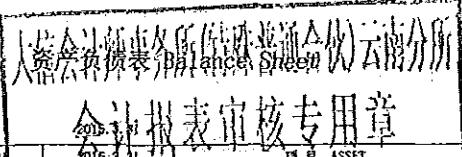 大信会计师事务所(特殊普通合伙)云南分所
资产负债表 Balance Sheet
会计报表审核专用章
2015.3.31
2015.3.31 项目 ASSET